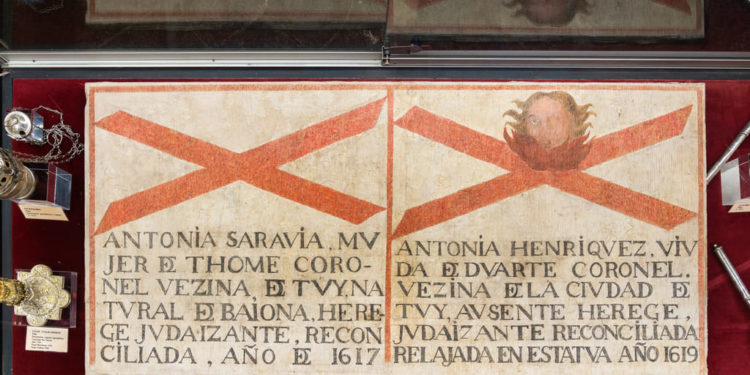 ANTONIA SARAVIA, MV
JER DE THOME CORO-
NEL VEZINA, DE TVY, NA
TVRAL DE BAIONA, HERE-
GE JVDAIZANTE, RECON
CILIADA, AÑO DE 1617
ANTONIA HENRIQVEZ, VIV
DA DE DVARTE CORONEL.
VEZINA DE LA CIVDAD DE
TVY, AVSENTE HEREGE,
JVDAIZANTE RECONCILIADA
RELAJADA EN ESTATVA AÑO 1619